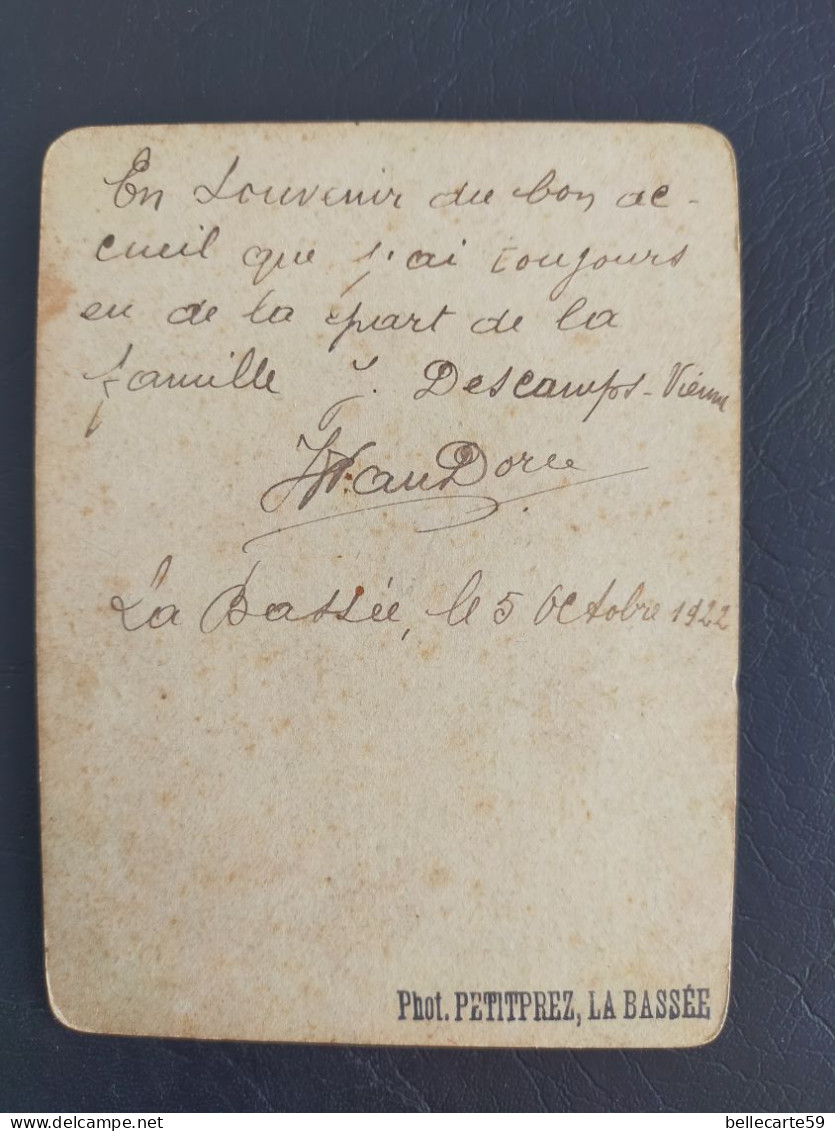 En Souvenir du bon ac-
cueil que j'ai toujours
eu de la part de la
famille J. Descamps-Vienne
VanDore
La Bassée, le 5 Octobre 1922
Phot. PETITPREZ, LA BASSÉE
bellecarte59